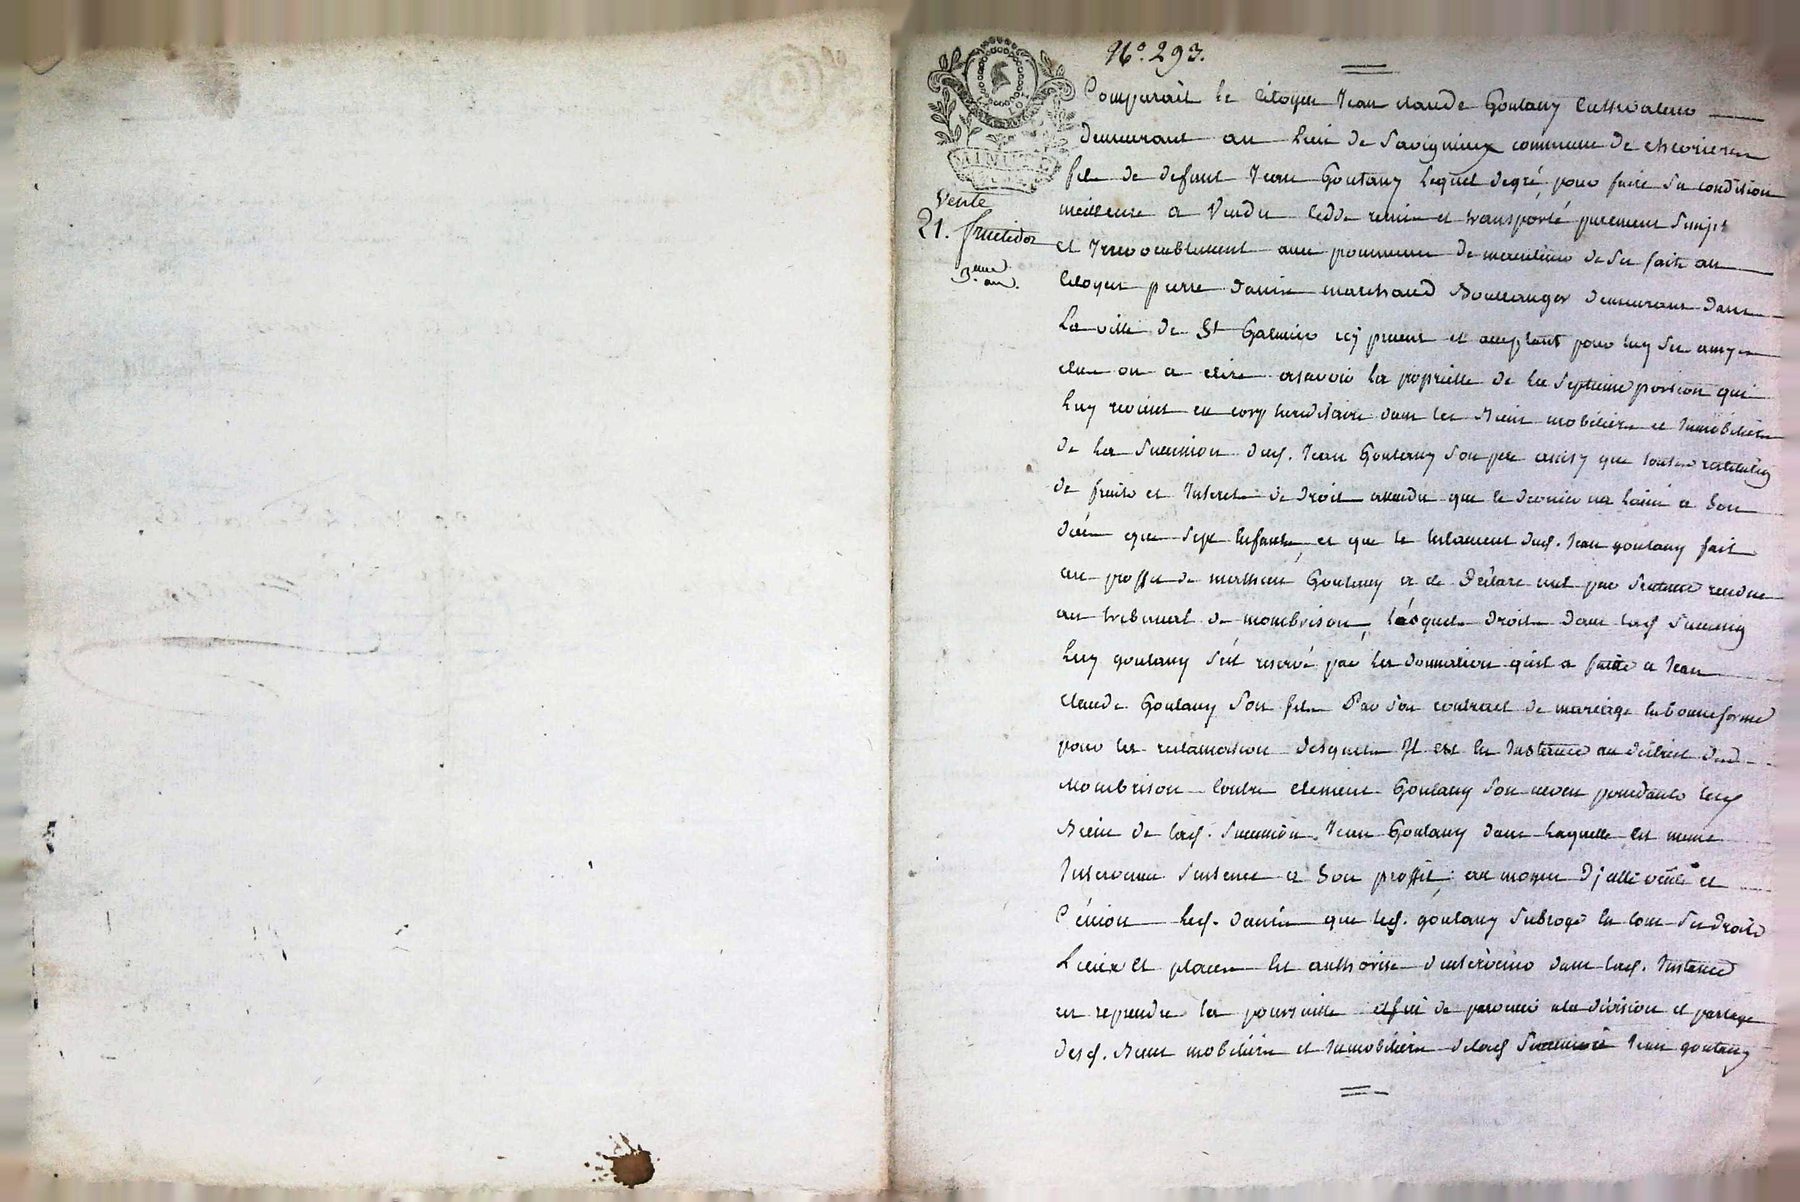 N.º 293.
MINUTE
Vente
21. fructidor
3.eme an.
Comparait le Citoyen Jean claude Goutany Cultivateur
demeurant au lieu de Savignieux commune de chevrieres
fils de defunt Jean Goutany lequel degré, pour faire sa condition
meilleure a Vendu cedde remis et transporté purement Simpt
et Irrevocablement avec promesse de maintenir de Son fait au
Citoyen pierre marchand Boullanger demeurant dans
La ville de St Galmier icy present et acceptant pour luy Ses amys
elus ou a elire asavoir la proprietté de la Septieme portion qui
Luy revient en corp hereditaire dans les Biens mobiliers et Immobiliers
de la Succession dud. Jean Goutany Son pere ainsy que toutes
de fruits et Interets de droit attendu que le dernier na laissé a Son
déces que Sept Enfants, et que le testament dud. Jean goutany fait
au proffit de mathieu Goutany a été Déclaré nul par Sentence rendue
au tribunal de montbrison, lésquels droits dans lad Succession
Luy goutany S'est reservé par la donnation quil a faitte a Jean
claude Goutany Son fils Par Son contract de mariage en bonne forme
pour la reclamation desquels Il est en Instance au district de
Montbrison Contre clement Goutany Son neveu lesd
Biens de lad. Succession Jean Goutany dans laquelle Est meme
Intervenue Sentence a Son proffit, au moyen de ditte vente et
Cession led. que led. goutany Subroge en tous Ses droits
Lieux Et places Est authorisé d'intervenir dans lad. Instance
en reprendre la poursuitte affin de parvenir a la division et partage
desd. Biens mobiliers et Immobiliers de lad Succession Jean goutany